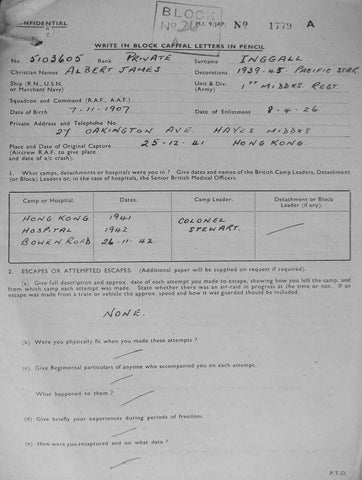 CONFIDENTIAL
BLOCK
No 20
M.I. 9/JAP No 1779 A
WRITE IN BLOCK CAPITAL LETTERS IN PENCIL
No. 5103605 Rank PRIVATE Surname INGGALL
Christian Names ALBERT JAMES Decorations 1939-45 PACIFIC STAR
Ship (R.N., U.S.N. or Merchant Navy) Unit & Div. (Army) 1ST MIDDXS REGT.
Squadron and Command (R.A.F., A.A.F.)
Date of Birth 7-11-1907 Date of Enlistment 8-4-26
Private Address and Telephone No.
27 OAKINGTON AVE. HAYES MIDDXS
Place and Date of Original Capture 25-12-41 HONG KONG.
(Aircrew R.A.F. to give place
and date of a/c crash).
1. What camps, detachments or hospitals were you in? Give dates and names of the British Camp Leaders, Detachment
(or Block) Leaders or, in the case of hospitals, the Senior British Medical Officers.
Camp or Hospital. Dates. Camp Leader. Detachment or Block Leader (if any).
HONG KONG. 1941 COLONEL
HOSPITAL 1942 STEWART.
BOWEN ROAD 26-11-42.
2. ESCAPES OR ATTEMPTED ESCAPES. (Additional paper will be supplied on request if required).
(a) Give full description and approx. date of each attempt you made to escape, showing how you left the camp, and
from which camp each attempt was made. State whether there was an air-raid in progress at the time or not. If an
escape was made from a train or vehicle the approx. speed and how it was guarded should be included.
NONE.
(b) Were you physically fit when you made these attempts?
(c) Give Regimental particulars of anyone who accompanied you on each attempt.
What happened to them?
(d) Give briefly your experiences during periods of freedom.
(e) How were you recaptured and on what date?
P.T.O.